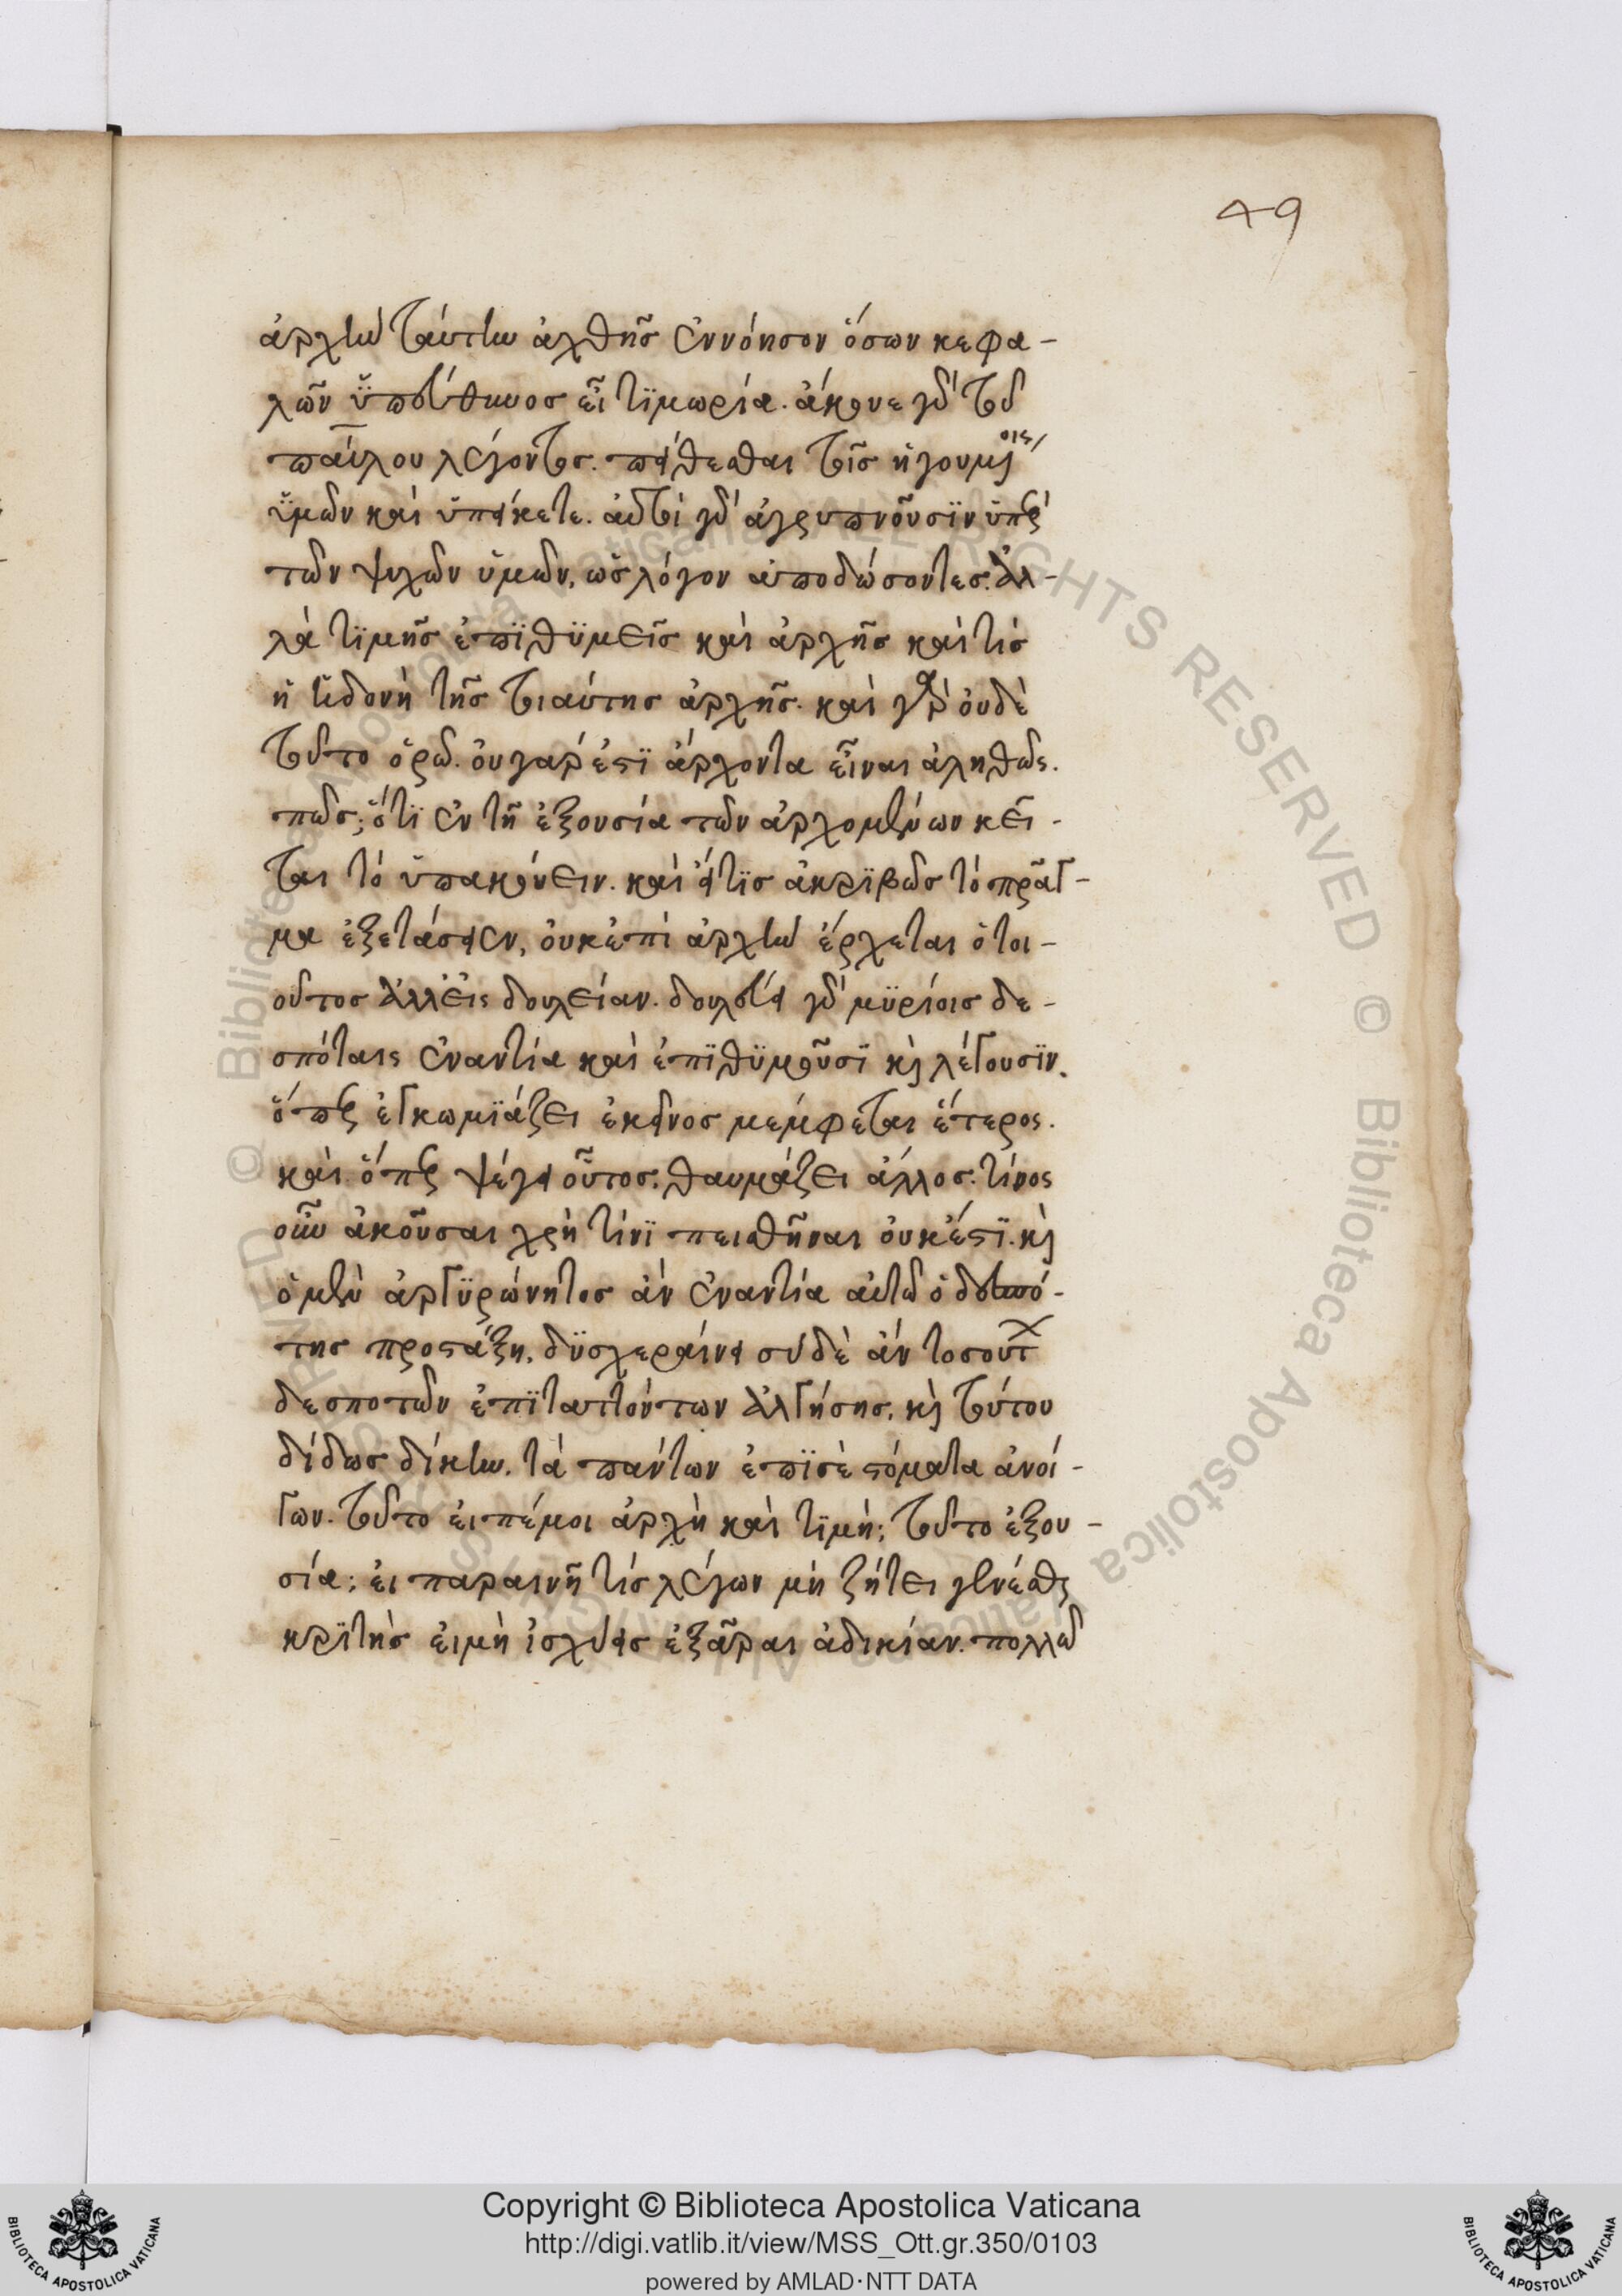 49
ἀρχὴν ταύτην ἀχθῆς ἐννόησον ὅσων κεφα-
λῶν ὑπεύθυνος εἶ τϊμωρία. ἀκουε γὰρ τοῦ
παύλου λέγοντος. πείθεσθαι τοῖς ἡγουμένοις
ὑμῶν καὶ ὑπείκετε. αὐτοὶ γὰρ ἀγρυπνοῦσϊν ὑπὲρ
τῶν ψυχῶν ὑμῶν, ὡς λόγον ἀποδώσοντες. ἀλ-
λὰ τϊμῆς ἐπϊθϋμεῖς καὶ ἀρχῆς καὶ τίς
ἡ ἡδονὴ τῆς τοιαύτης ἀρχῆς. καὶ γὰρ οὐδὲ
τοῦτο ὁρῶ. οὐ γὰρ ἐστϊ ἄρχοντα εἶναι ἀληθῶς.
πῶς; ὅτϊ ἐν τῆ ἐξουσία τῶν ἀρχομένων κεῖ-
ται τὸ ὑπακούειν. καὶ εἴ τϊς ἀκρϊβῶς τὸ πρᾶγ-
μα ἐξετάσειεν, οὐκ ἐπὶ ἀρχὴν ἔρχεται ὁ τοι-
οῦτος ἀλλ' εἰς δουλείαν. δουλεύει γὰρ μϋρίοις δε-
σπόταις ἐναντία καὶ ἐπϊθϋμοῦσϊ καὶ λέγουσϊν.
ὅπερ ἐγκωμϊάζει ἐκεῖνος μέμφεται ἕτερος.
καὶ ὅπερ ψέγει οὗτος. θαυμάζει ἄλλος. τίνος
οὖν ἀκοῦσαι χρὴ τίνϊ πεισθῆναι οὐκ ἔστϊ. καὶ
ὁ μὲν ἀργϋρώνητος ἀν ἐναντία αὐτῶ ὁ δεσπό-
της προστάξη, δϋσχεραίνει σὺ δὲ ἀν τοσούτων
δεσποτῶν ἐπϊταττόντων ἀλγήσης, καὶ τούτου
δίδως δίκην. τὰ πάντων ἐπϊ σὲ στόματα ἀνοί-
γων. τοῦτο εἰπέ μοι ἀρχὴ καὶ τϊμή; τοῦτο ἐξου-
σία; εἰ παραινῆ τίς λέγων μὴ ζήτει γενέσθαι
κρϊτὴς εἰ μὴ ἰσχύεις ἐξᾶραι ἀδικίαν. πολλῶ
Copyright © Biblioteca Apostolica Vaticana
http://digi.vatlib.it/view/MSS_Ott.gr.350/0103
powered by AMLAD·NTT DATA